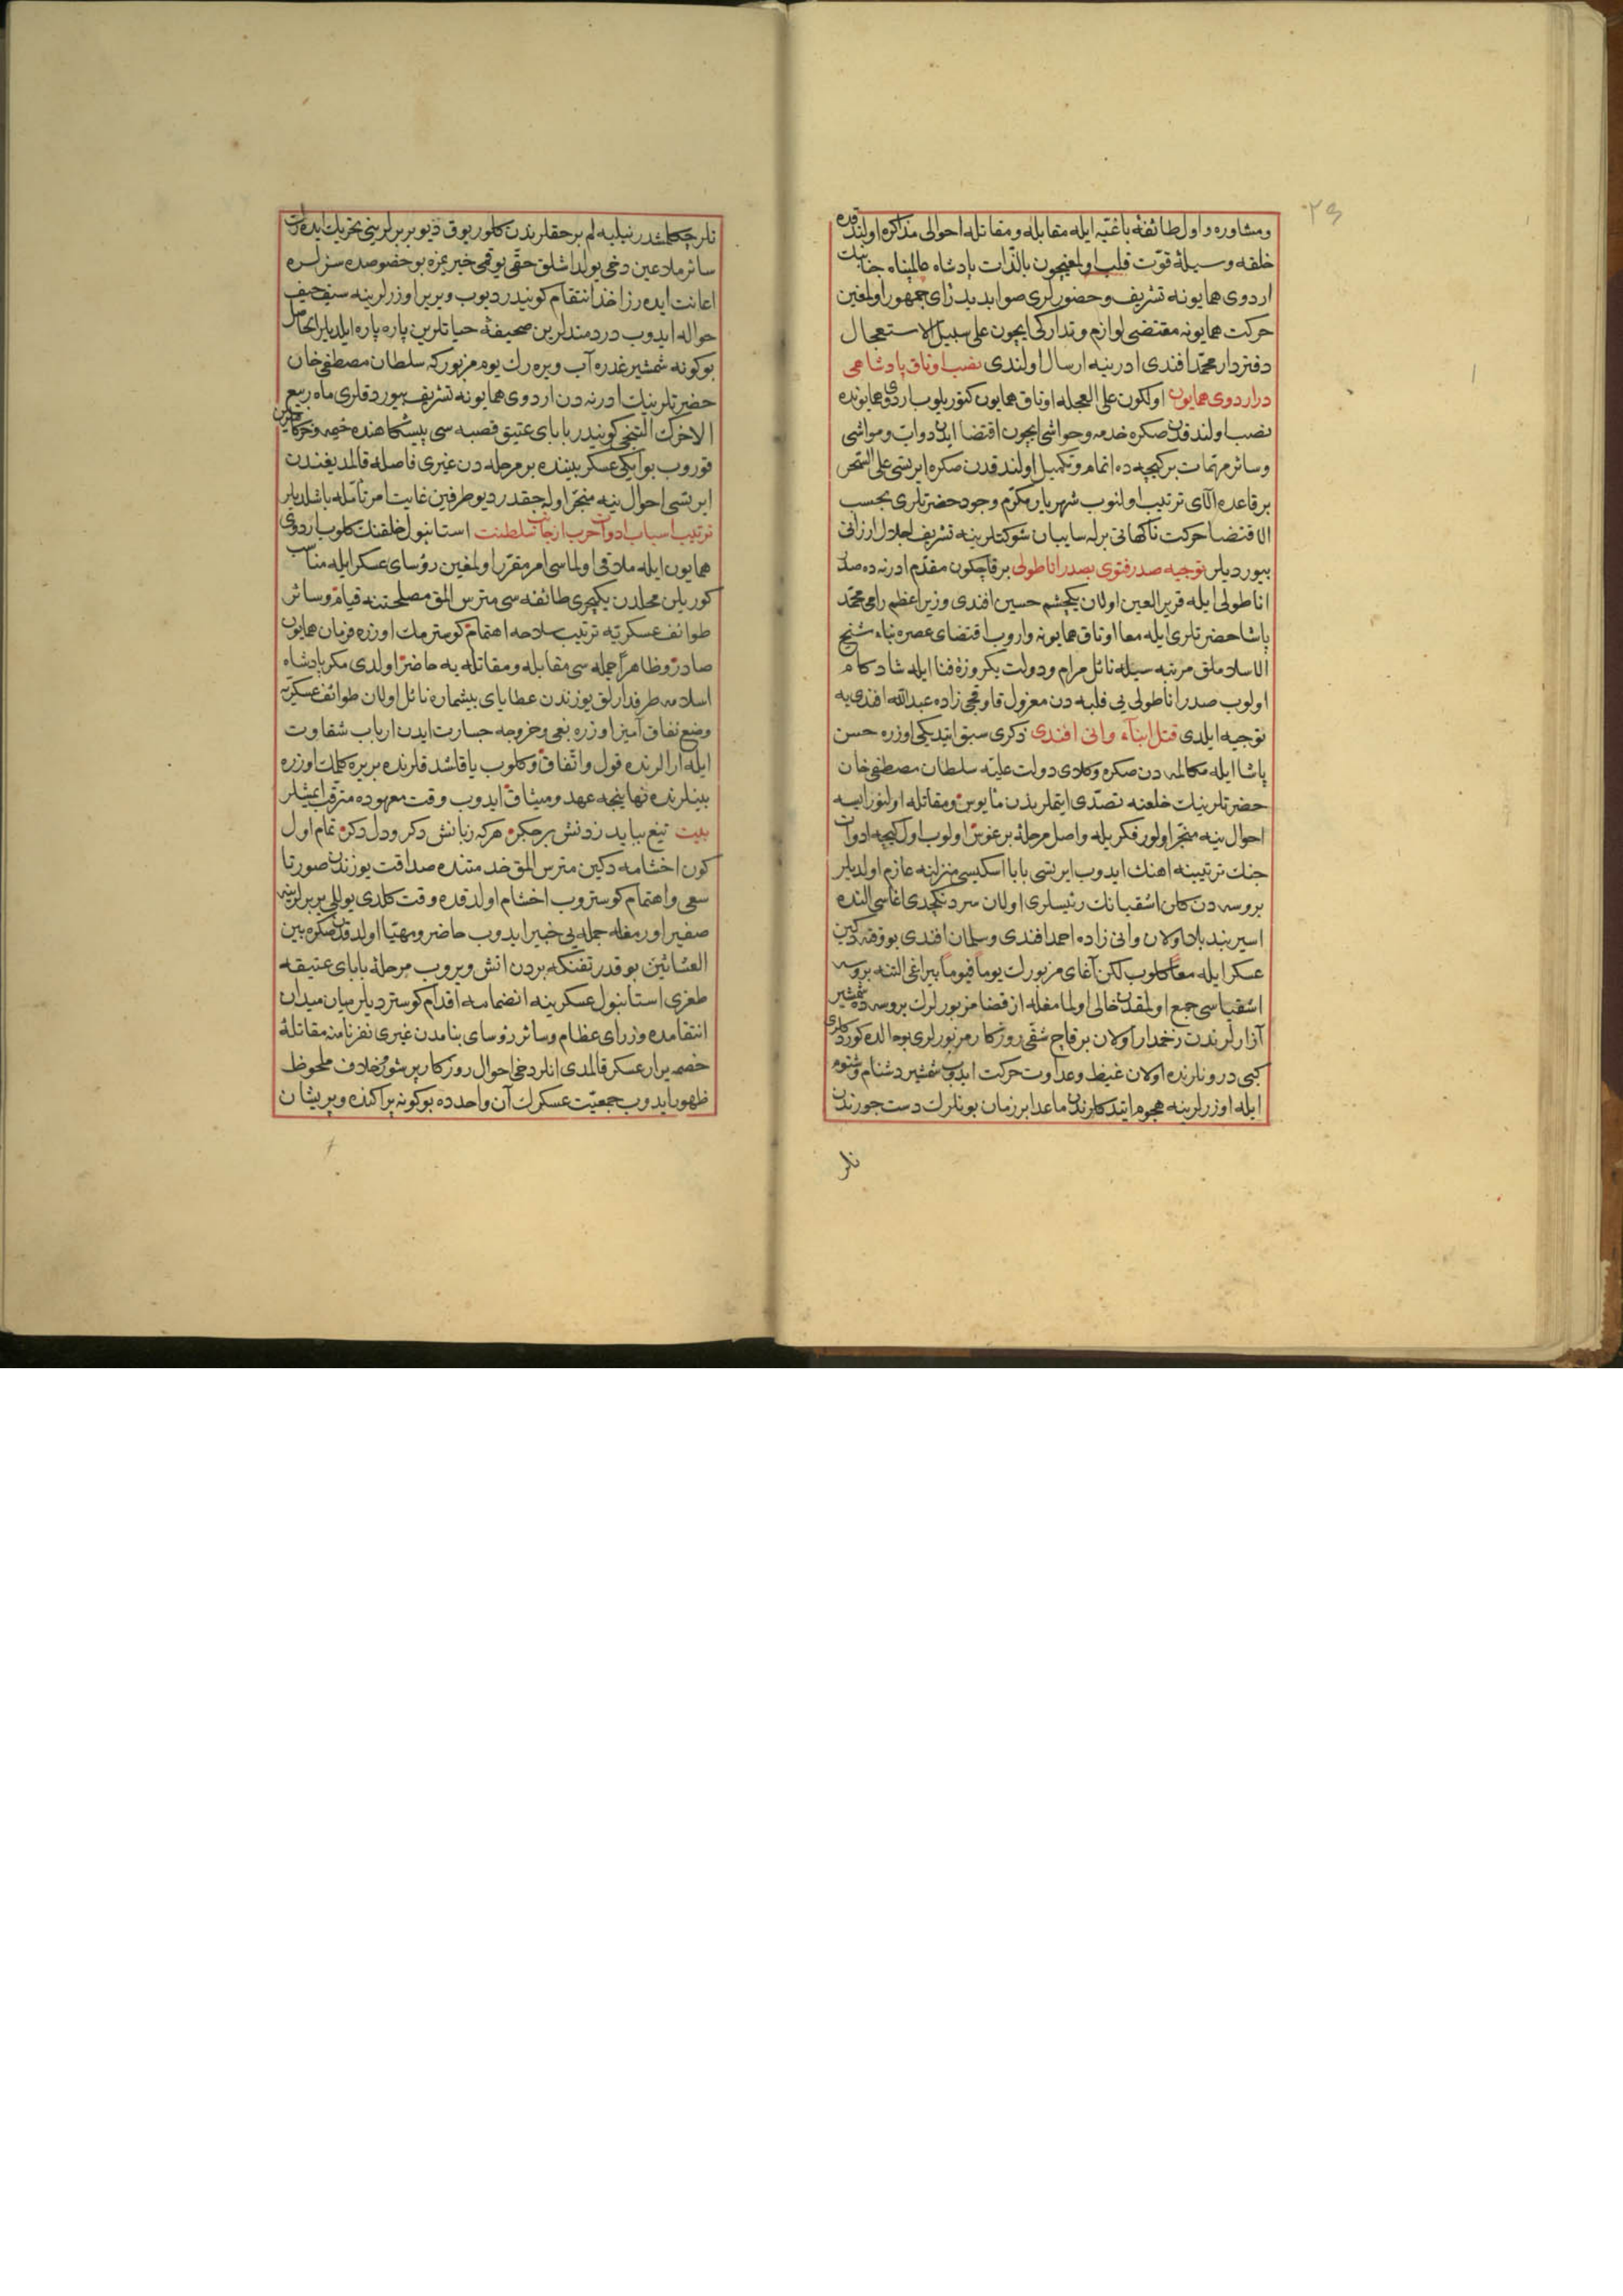 ٢٩
ومشاوره و اول طائفهٔ باغیه ایله مقابله ومقاتله احوالی مذاکره اولندقده
خلقه وسیلهٔ قوت قلب اولمغیچون بالذات پادشاه عالمپناه جنابنك
اردوی همایونه تشریف وحضورلری صوابدید رای جمهور اولمغین
حرکت همایونه مقتضی لوازم وتدارکی ایچون علی سبیل الاستعجال
دفتردار محمد افندی ادرنیه ارسال اولندی نصب اوتاق پادشاهی
در اردوی همایون اولکون علی العجله اوتاق همایون کتوریلوب اردوی همایونده
نصب اولندقدن صکره خدمه وحواشی ایچون اقتضا ایدن دواب ومواشی
وسائر مهمات برکیجه ده اتمام وتکمیل اولندقدن صکره ایرتسی علی السحر
بر قاعده آلای ترتیب اولنوب شهریار مکرم وجود حضرتلری بحسب
الاقتضا حرکت ناکهانی برله سایبان شوکتلرینه تشریف اجلال ارزانی
بیوردیلر توجیه صدر فتوی بصدر اناطولی برقاچکون مقدم ادرنه ده صدر
اناطولی ایله قریر العین اولان یکچشم حسین افندی وزیر اعظم رامی محمد
پاشا حضرتلری ایله معا اوتاق همایونه واروب اقتضای عصره بناء شیخ
الاسلاملق مرتبه سیله نائل مرام ودولت یکروزهٔ فنا ایله شادکام
اولوب صدر اناطولی یی فلبه دن معزول قاوقجی زاده عبدالله افندی یه
توجیه ایلدی قتل ابناء وانی افندی ذکری سبق ایتدیکی اوزره حسن
پاشا ایله مکالمه دن صکره وکلای دولت علیه سلطان مصطفی خان
حضرتلرینك خلعنه تصدی ایتملریدن مأیوس ومقاتله اولنور ایسه
احوال ینه منجر اولور فکریله واصل مرحلهٔ برغوس اولوب اول کیجه ادوات
جنك ترتیبنه اهنك ایدوب ایرتسی بابا اسکیسی منزلنه عازم اولدیلر
بروسه دن کلن اشقیانك رئیسلری اولان سردنکچدی اغاسی النده
اسیر بند بلا اولان وانی زاده احمد افندی وسلمان افندی بو وقته دکین
عسکر ایله معا کلوب لکن آغای مزبورك یوما فیوما بیراغی التنه بروسه
اشقیاسی جمع اولمقدن خالی اولمامغله از قضا مزبورلرك بروسه ده شمشیر
آزارلرندن زخمدار اولان برقاچ شقی روزکار مزبورلری بو حالده کوردکلری
کبی درونلرنده اولان غیظ وعداوت حرکت ایدوب شمشیر دشنام وشتوم
ایله اوزرلرینه هجوم ایتدکلرندن ماعدا بر زمان بونلرك دست جورندن
نلر
نلر چکلمشدر نیلیه لم بر حقلریدن کلور یوق دیو بربرلرینی تحریك ایدرك
سائر ملاعین دخی یولداشلق حقی یوقمی خیر بزه بو خصوصده سزلره
اعانت ایده رز اخذ انتقام کونیدر دیوب ویریر اوزرلرینه سیف حیف
حواله ایدوب دردمندلرین صحیفهٔ حیاتلرین پاره پاره ایلدیلر الحاصل
بو کونه شمشیر غدره آب ویره رك یوم مزبور که سلطان مصطفی خان
حضرتلرینك ادرنه دن اردوی همایونه تشریف بیوردقلری ماه ربیع
الاخرك التنجی کونیدر بابای عتیق قصبه سی پیشکاهنده خیمه وخرکاهلرین
قوروب بو ایکی عسکر بیننده بر مرحله دن غیری فاصله قالمدیغندن
ایرتسی احوال ینه منجر اوله جقدر دیو طرفین غایت امر تأمله باشلدیلر
ترتیب اسباب ادوات حرب از جانب سلطنت استانبول خلقنك کلوب اردوی
همایون ایله ملاقی اولماسی امر مقرر اولمغین رؤسای عسکر ایله مناسب
کوریلن محلدن یکیچری طائفه سی متریس المق مصلحتنه قیام وسائر
طوائف عسکریه ترتیب سلاحه اهتمام کوسترمك اوزره فرمان همایون
صادر وظاهرا جمله سی مقابله ومقاتله یه حاضر اولدی مکر پادشاه
اسلامه طرفدارلق یوزندن عطایای بیشماره نائل اولان طوائف عسکریه
وضع نفاق آمیز اوزره بغی وخروجه جسارت ایدن ارباب شقاوت
ایله ارالرنده قول واتفاق وکلوب یاقلشدقلرنده بربره کلمك اوزره
بینلرنده نهانیجه عهد ومیثاق ایدوب وقت معهوده مترقب ایمشلر
بیت تیغ بباید زدنش بر جکر هرکه زبانش دکر ودل دکر تمام اول
کون اخشامه دکین متریس المق خدمتنده صداقت یوزندن صورتا
سعی واهتمام کوستروب اخشام اولدقده وقت کلدی یوللی بربرلرینه
صفیر اورمغله جمله یی خبیر ایدوب حاضر ومهیا اولدقدن صکره بین
العشائین بو قدر تفنکه بردن اتش ویروب مرحلهٔ بابای عتیقه
طغری استانبول عسکرینه انضمامه اقدام کوستردیلر میان میدان
انتقامده وزرای عظام وسائر رؤسای بنامدن غیری نفرنامنه مقاتلهٔ
خصمه یرار عسکر قالمدی انلر دخی احوال روزکار پر شور مخلاف ملحوظ
ظهور ایدوب جمعیت عسکرك آن واحدده بو کونه پراکنده وپریشان